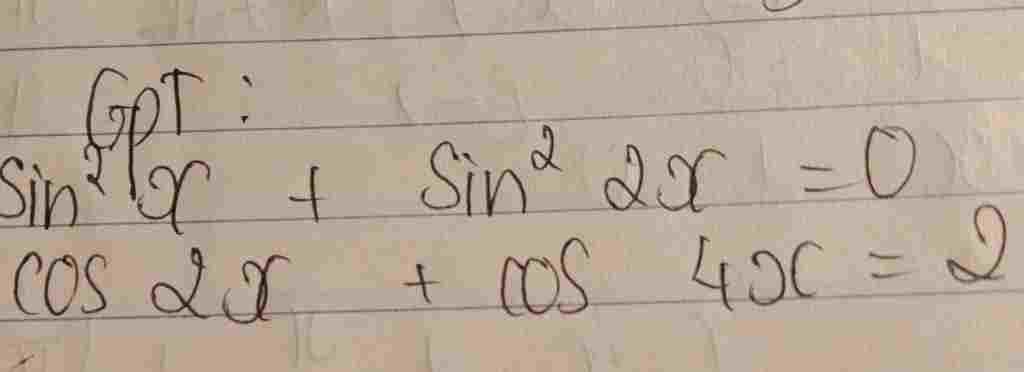 GpT :
sin² x + sin² 2x = 0
cos 2x + cos 4x = 2